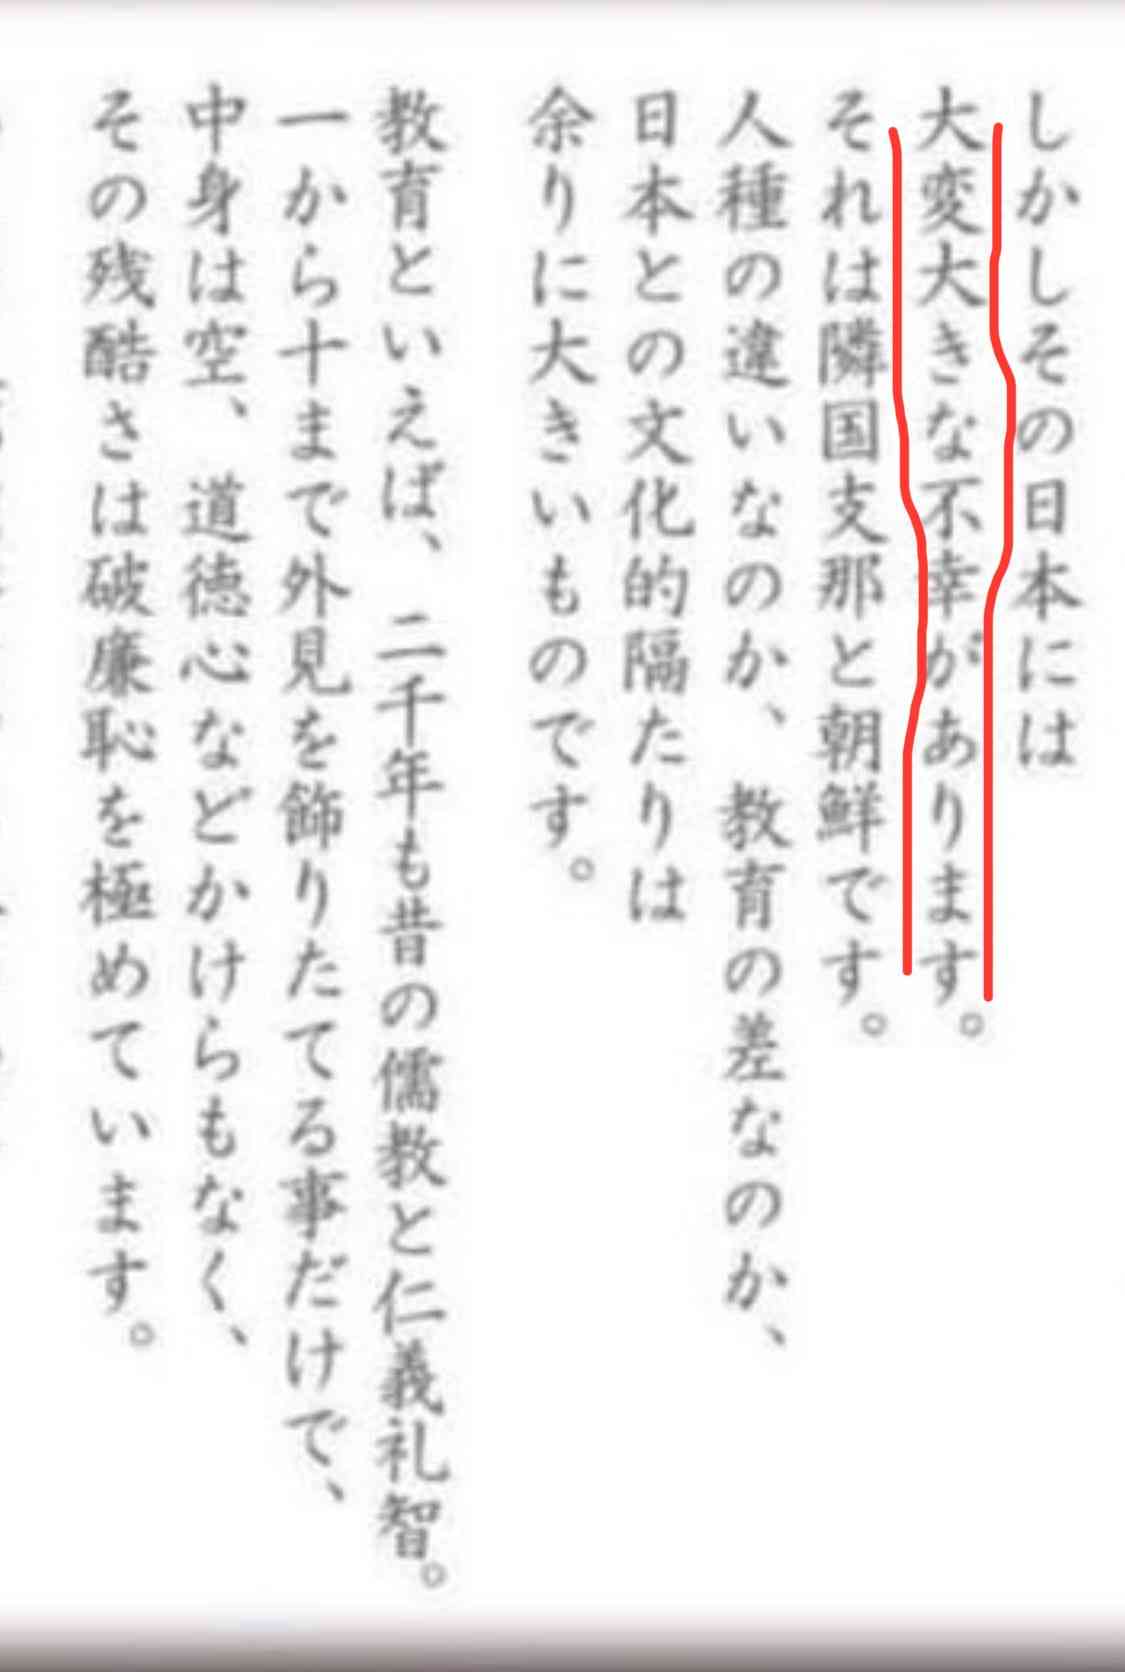 しかしその日本には
大変大きな不幸があります。
それは隣国支那と朝鮮です。
人種の違いなのか、教育の差なのか、
日本との文化的隔たりは
余りに大きいものです。
教育といえば、二千年も昔の儒教と仁義礼智。
一から十まで外見を飾りたてる事だけで、
中身は空、道徳心などかけらもなく、
その残酷さは破廉恥を極めています。